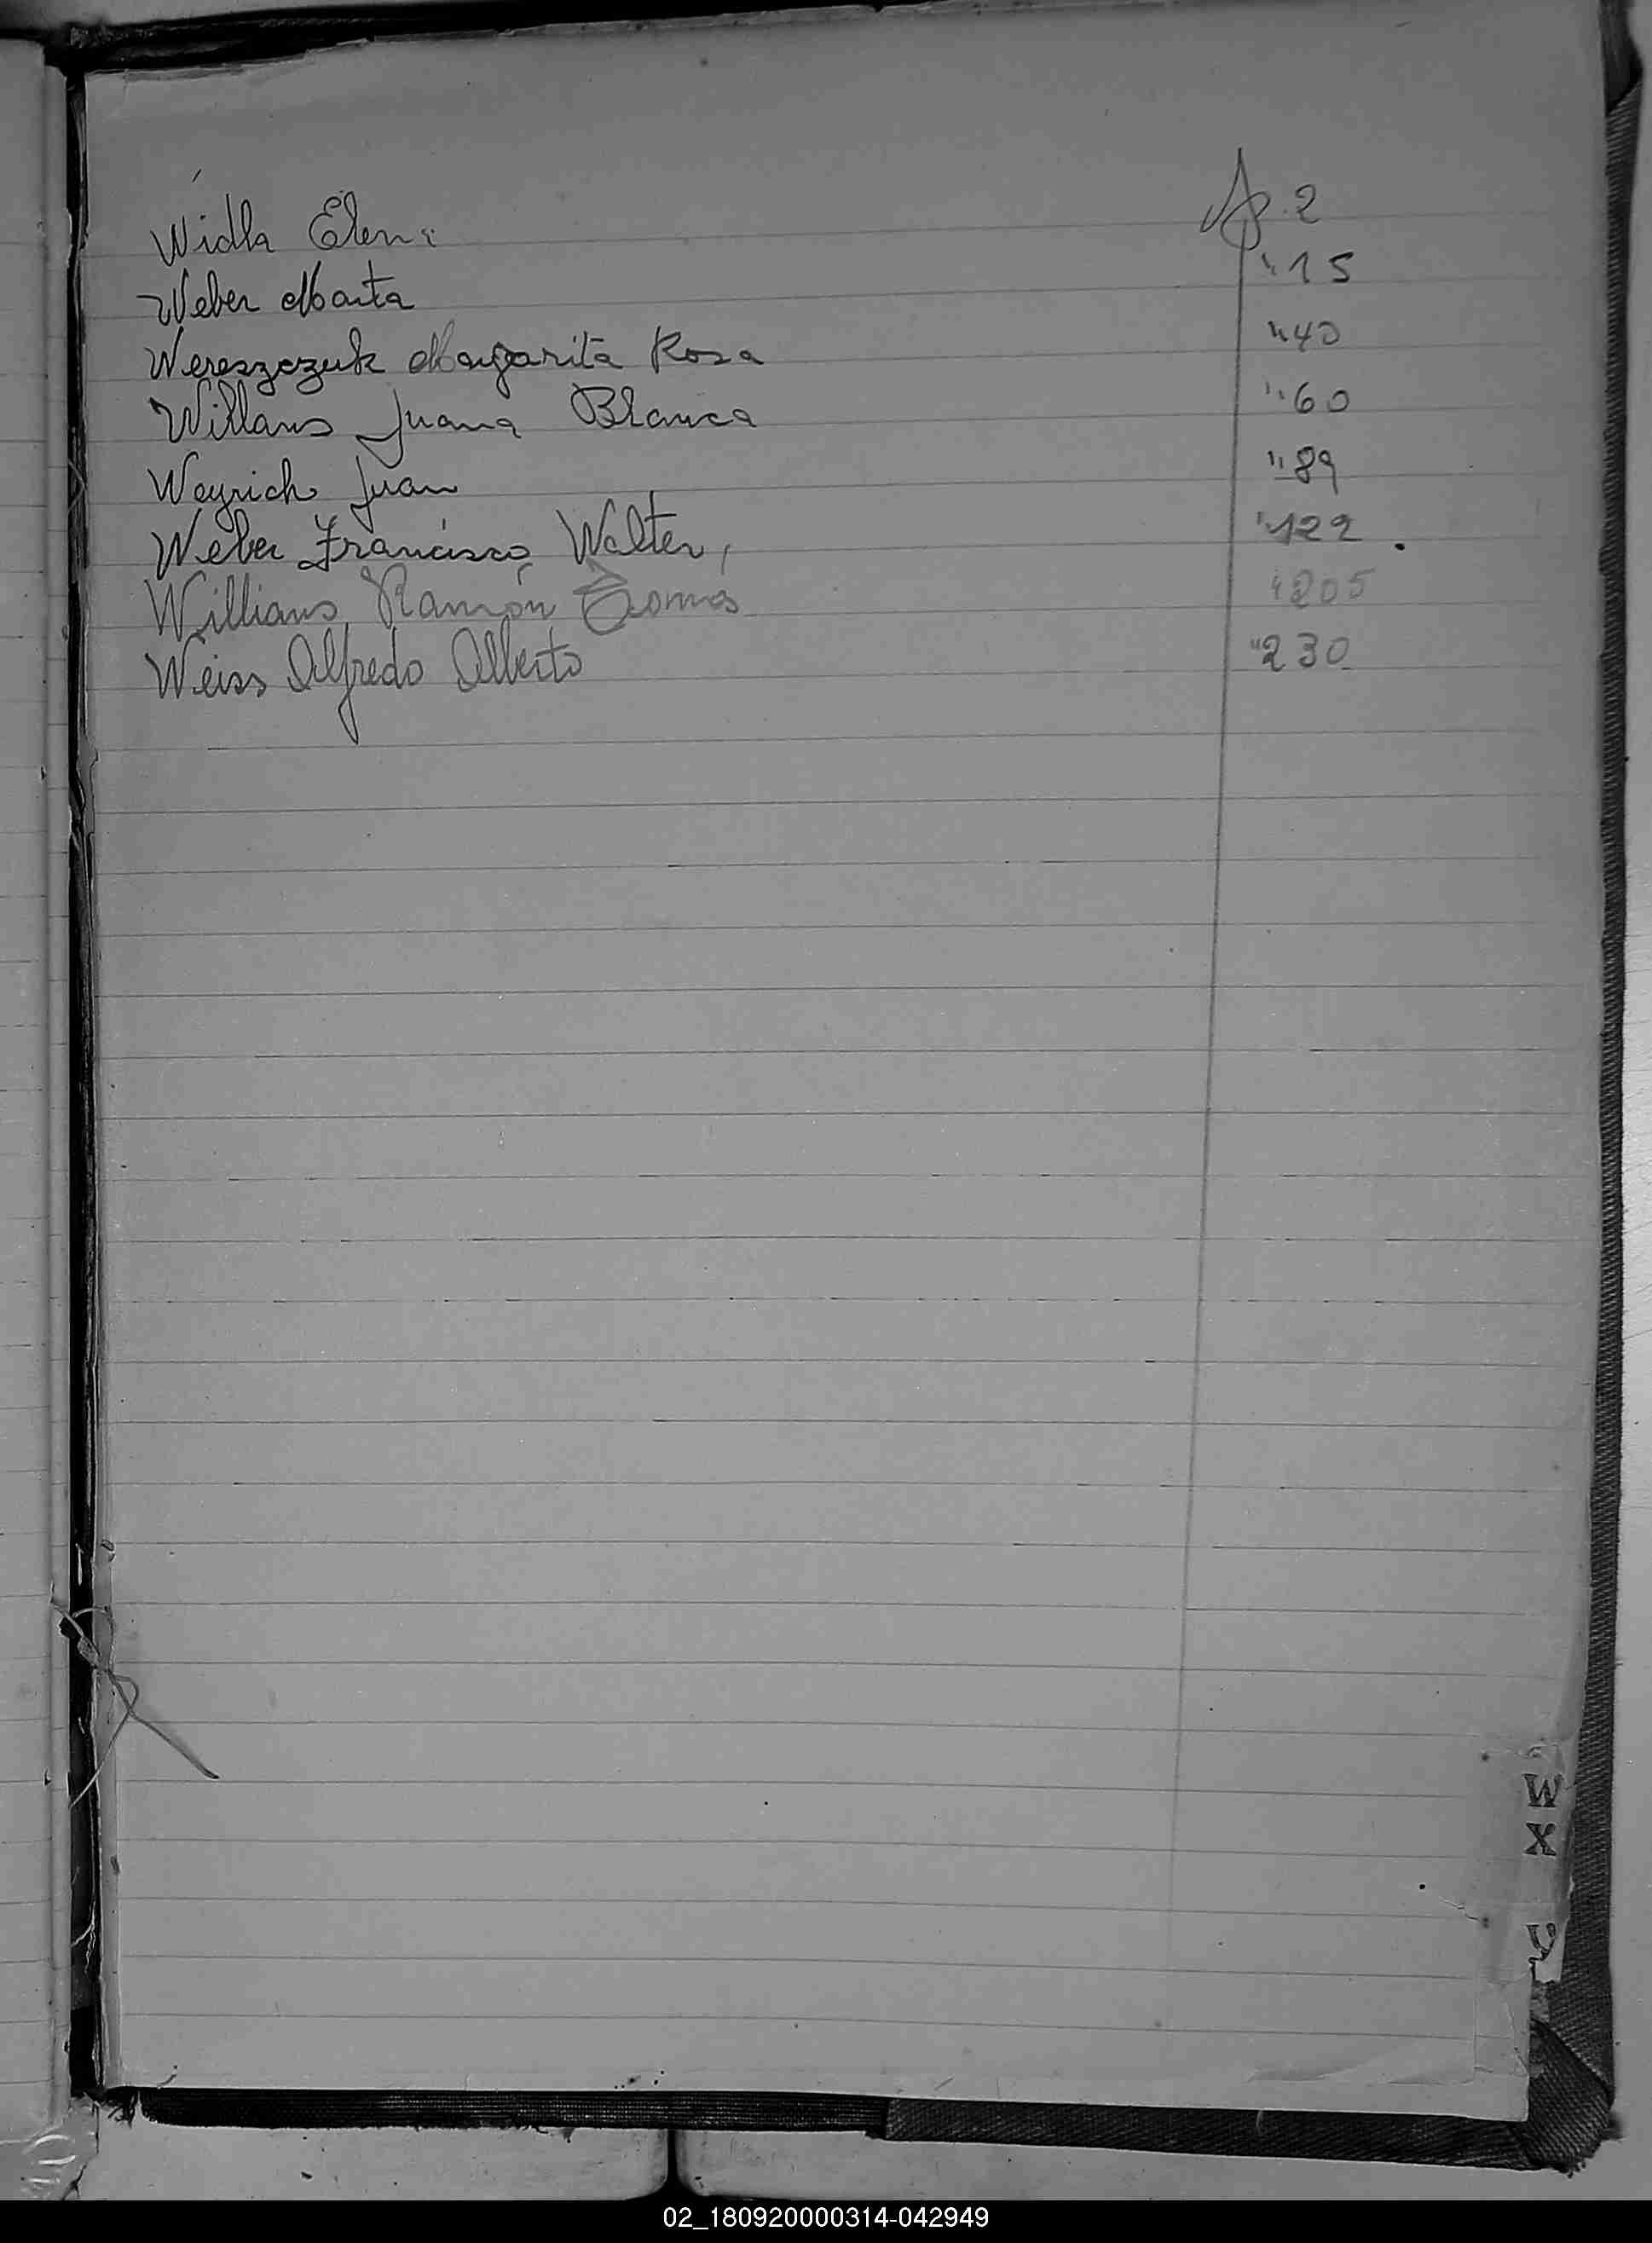 Widla Elena 2
Weber Marta " 15
Wereszczuk Margarita Rosa " 40
Willams Juana Blanca " 60
Weyrich Juan " 89
Weber Francisco Walter, " 122
Willians Ramón Tomás " 205
Weiss Alfredo Alberto " 230
W
X
Y
02_180920000314-042949